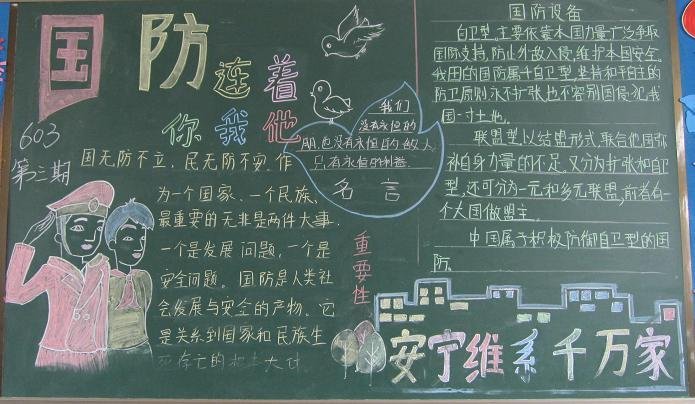 国防连着
你我他
603
第三期
国无防不立，民无防不安。作
为一个国家、一个民族，
最重要的无非是两件大事，
一个是发展问题，一个是
安全问题。国防是人类社
会发展与安全的产物。它
是关系到国家和民族生
死存亡的大计
重要性
我们
没有永恒的
朋，也没有永恒的敌人
只有永恒的利益
名言
国防设备
自卫型，主要依靠本国力量，广泛争取
国际支持，防止外敌入侵，维护本国安全。
我国的国防属于自卫型，坚持和平自主的
防卫原则，永不扩张，也不容别国侵犯我
国一寸土地。
联盟型，以结盟形式，联合他国弥
补自身力量的不足，又分为扩张和自卫
型，还可分为一元和多元联盟，前者有一
个大国做盟主。
中国属于积极防御自卫型的国
防。
安宁维系千万家